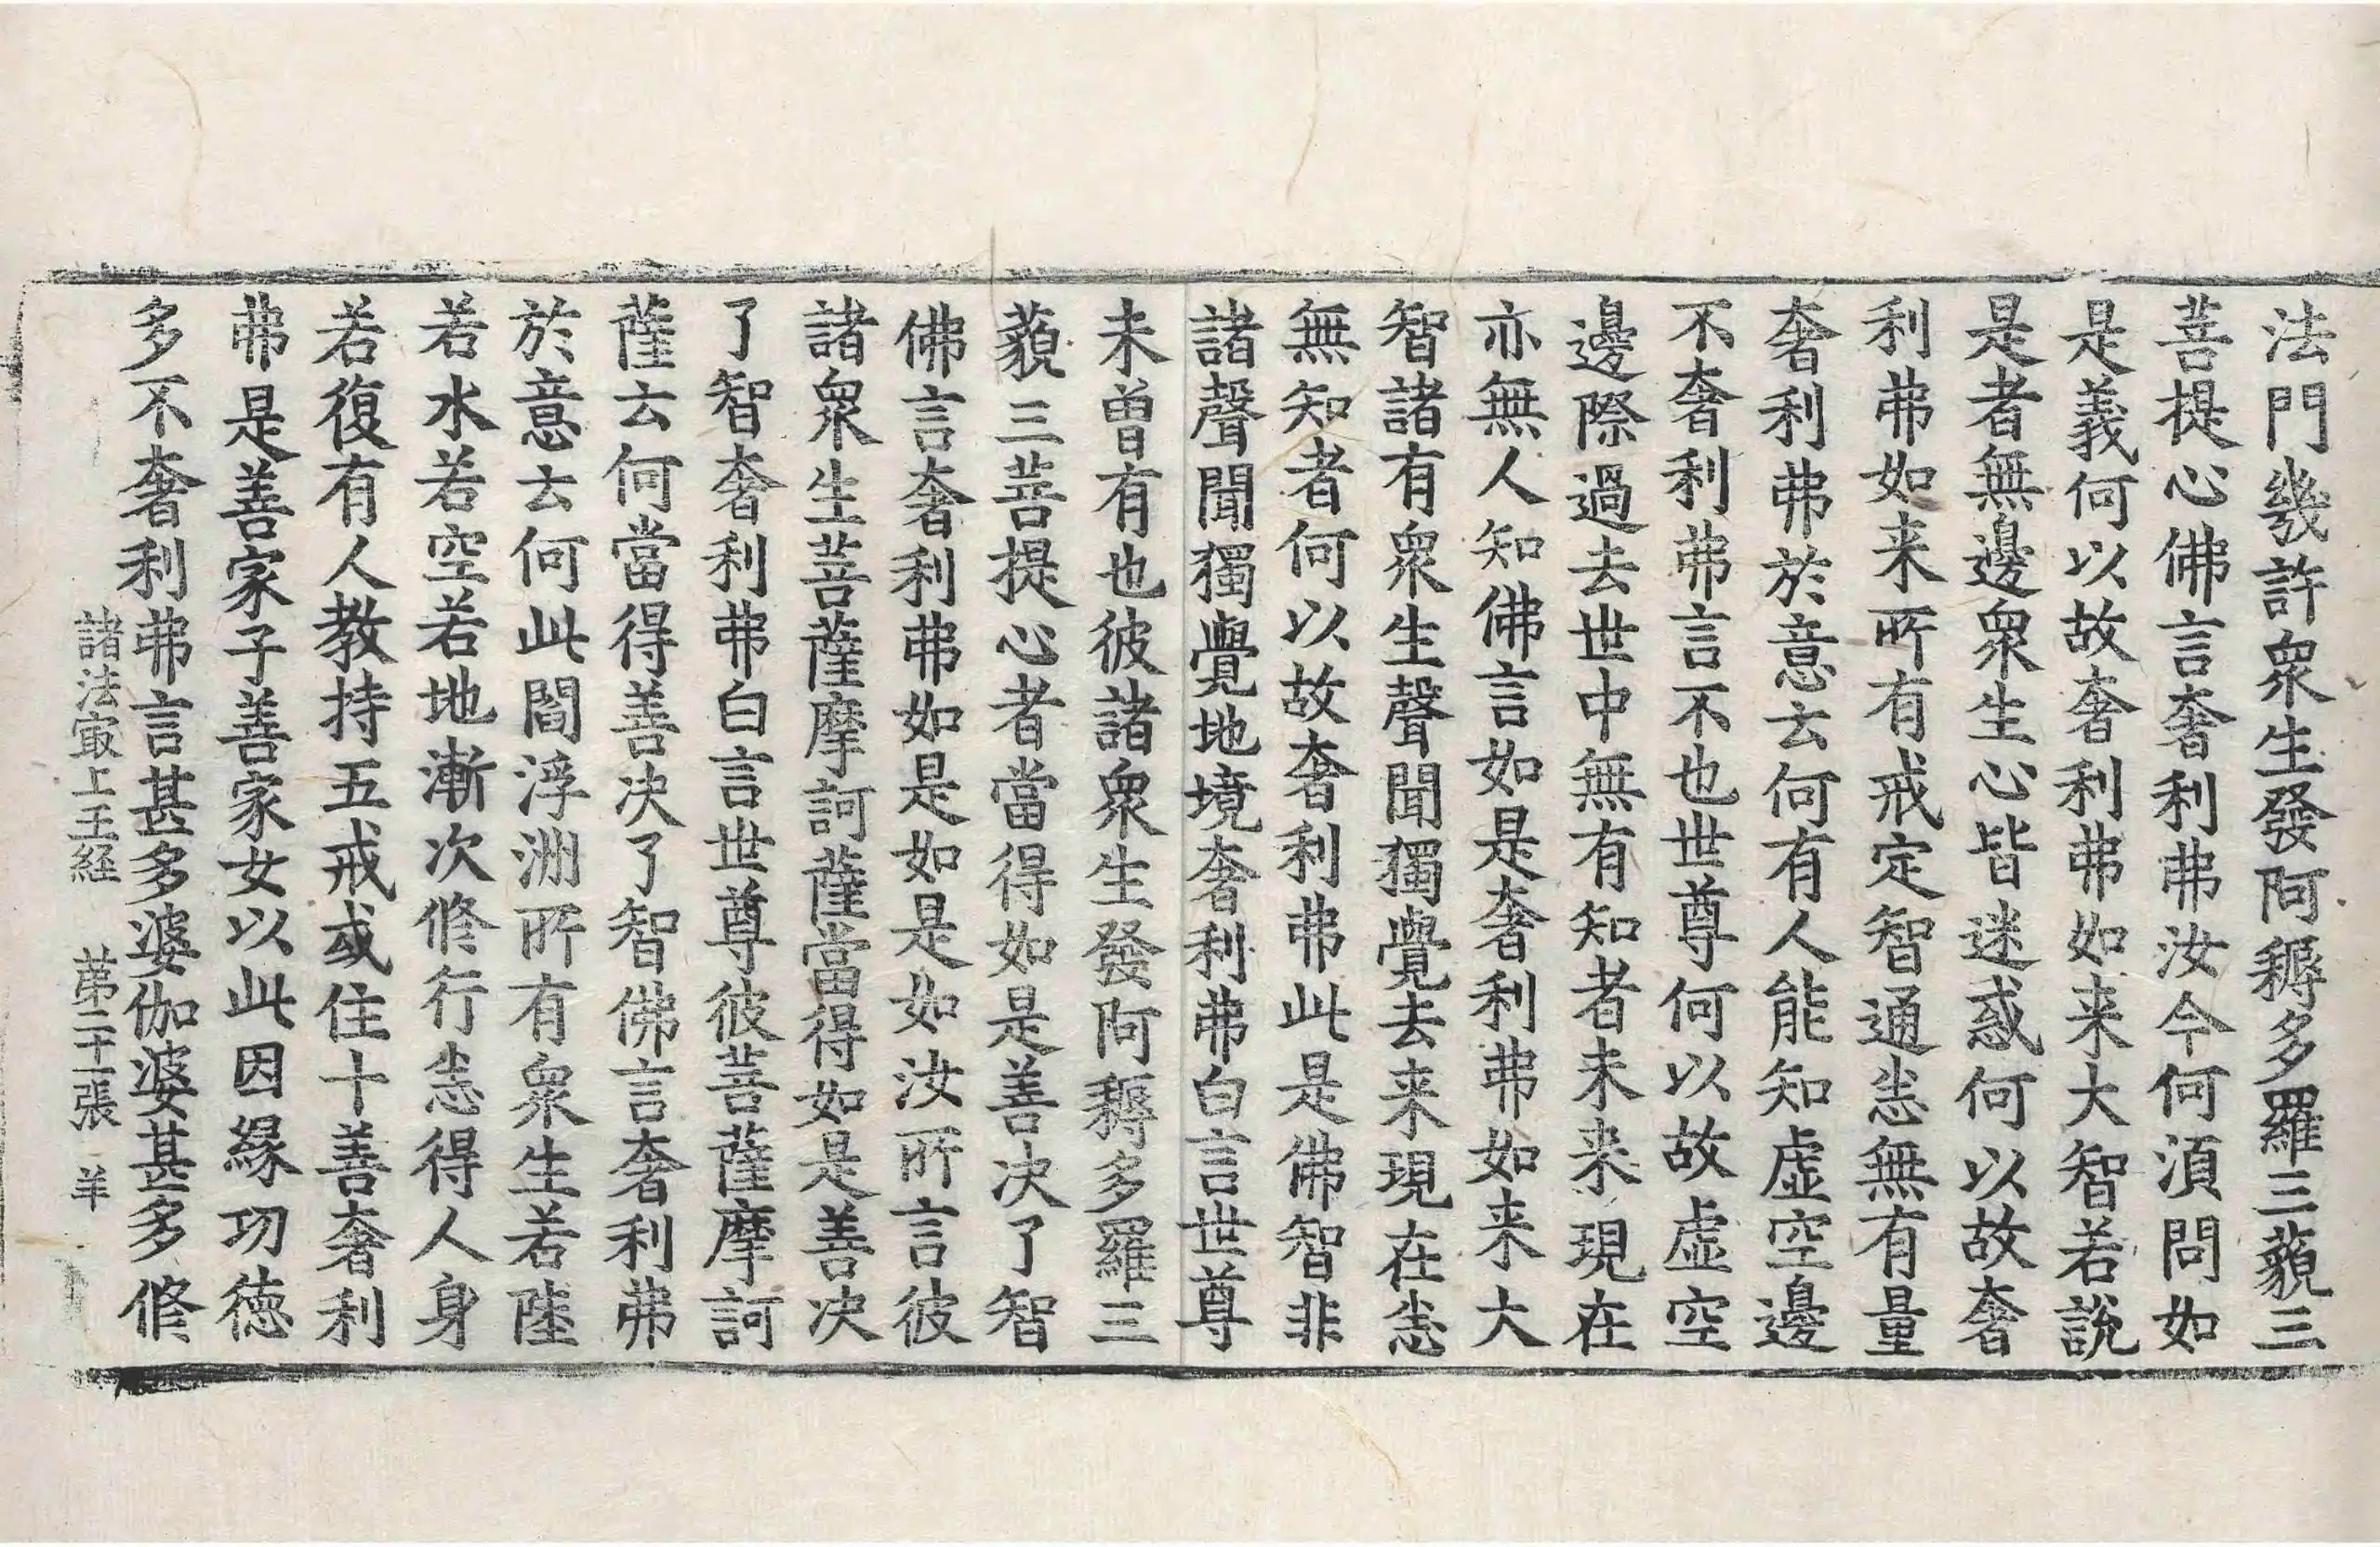 法門幾許衆生發阿耨多羅三藐三
菩提心佛言奢利弗汝今何湏問如
是義何以故奢利弗如来大智若說
是者無邊衆生心皆迷惑何以故奢
利弗如来所有戒定智通悉無有量
奢利弗於意云何有人能知虛空邊
不奢利弗言不也世尊何以故虛空
邊際過去世中無有知者未来現在
亦無人知佛言如是奢利弗如来大
智諸有衆生聲聞獨覺去来現在悉
無知者何以故奢利弗此是佛智非
諸聲聞獨覺地境奢利弗白言世尊
未曾有也彼諸衆生發阿耨多羅三
藐三菩提心者當得如是善决了智
佛言奢利弗如是如是如汝所言彼
諸衆生菩薩摩訶薩當得如是善决
了智奢利弗白言世尊彼菩薩摩訶
薩云何當得善决了智佛言奢利弗
於意云何此閻浮洲所有衆生若陸
若水若空若地漸次修行悉得人身
若復有人教持五戒或住十善奢利
弗是善家子善家女以此因緣功德
多不奢利弗言甚多婆伽婆甚多修
諸法㝡上王経 苐二十一張 羊